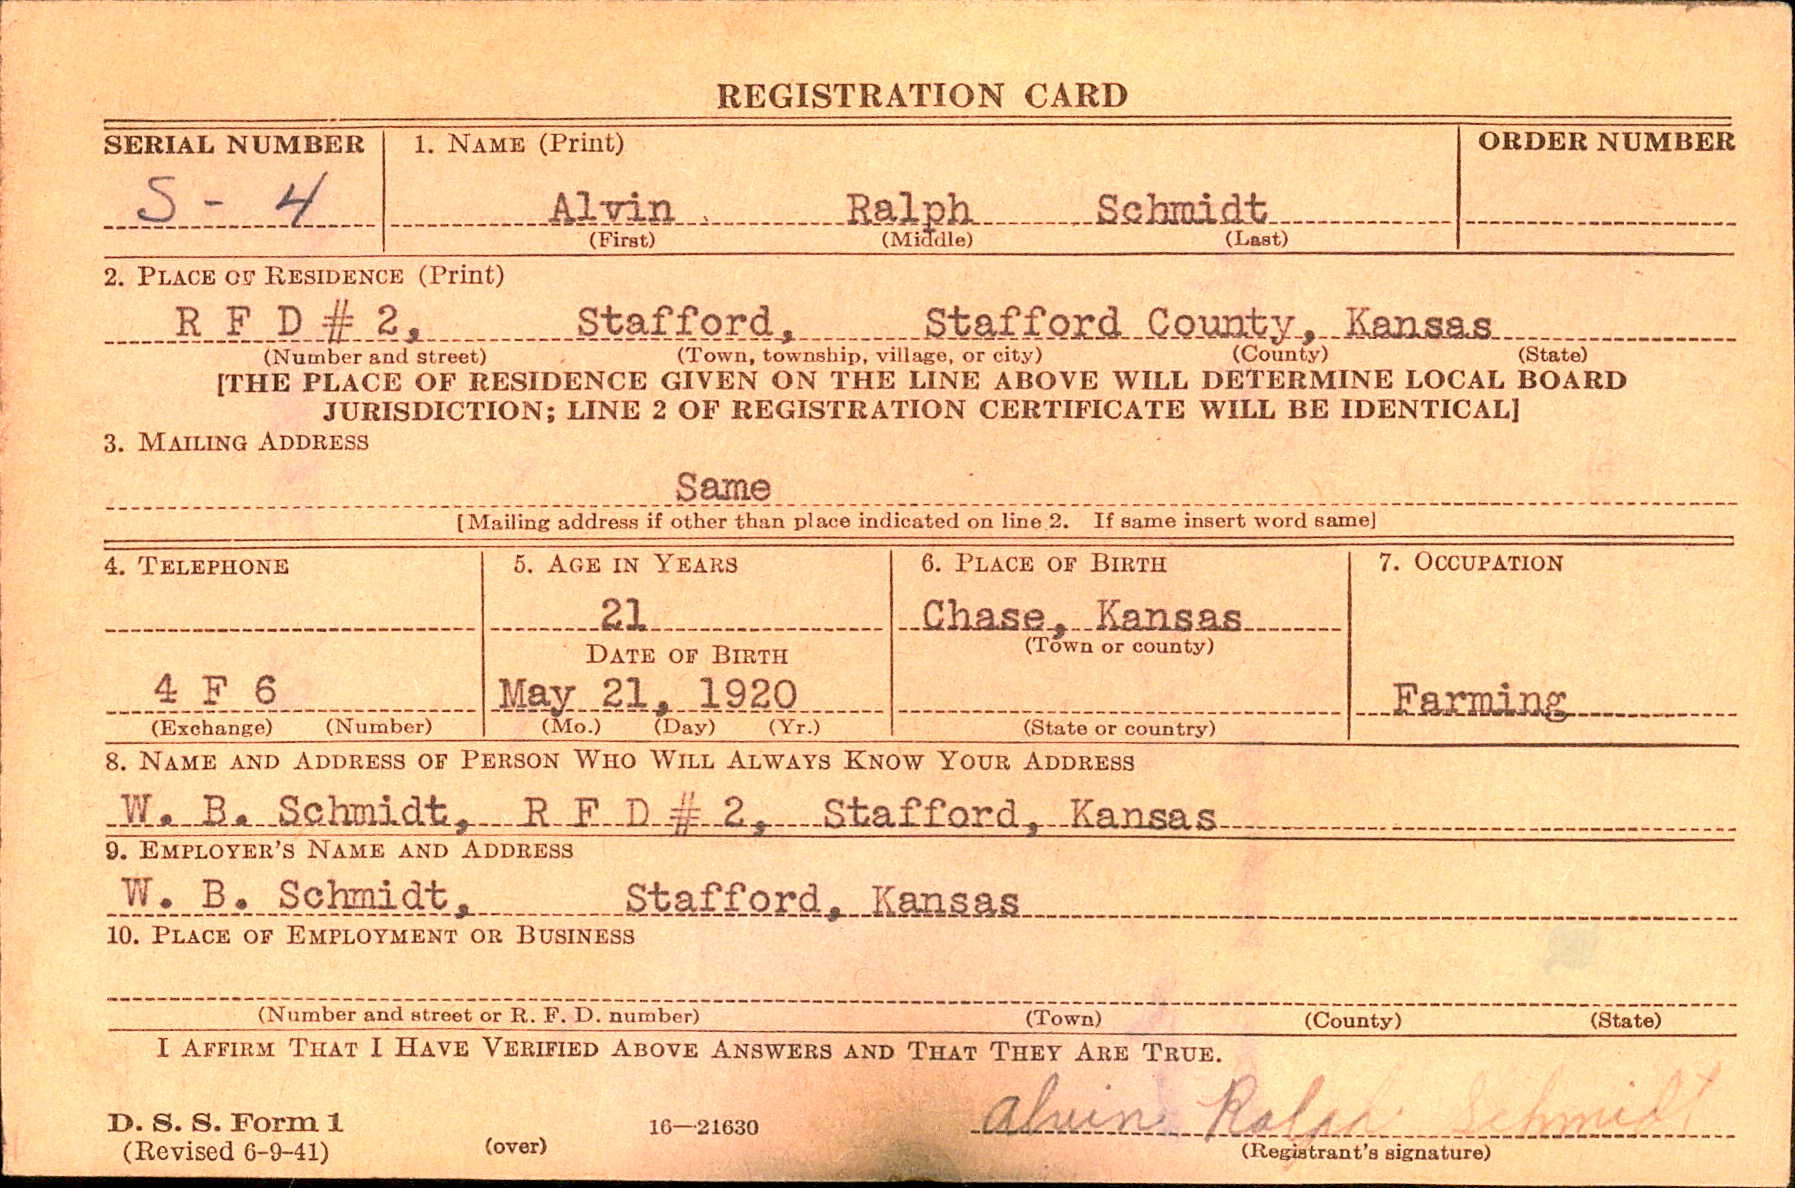 REGISTRATION CARD
SERIAL NUMBER 1. NAME (Print) ORDER NUMBER
S - 4 Alvin Ralph Schmidt
(First) (Middle) (Last)
2. PLACE OF RESIDENCE (Print)
R F D # 2, Stafford, Stafford County, Kansas
(Number and street) (Town, township, village, or city) (County) (State)
[THE PLACE OF RESIDENCE GIVEN ON THE LINE ABOVE WILL DETERMINE LOCAL BOARD
JURISDICTION; LINE 2 OF REGISTRATION CERTIFICATE WILL BE IDENTICAL]
3. MAILING ADDRESS
Same
[Mailing address if other than place indicated on line 2. If same insert word same]
4. TELEPHONE 5. AGE IN YEARS 6. PLACE OF BIRTH 7. OCCUPATION
21 Chase, Kansas
DATE OF BIRTH (Town or county)
4 F 6 May 21, 1920 Farming
(Exchange) (Number) (Mo.) (Day) (Yr.) (State or country)
8. NAME AND ADDRESS OF PERSON WHO WILL ALWAYS KNOW YOUR ADDRESS
W. B. Schmidt, R F D # 2, Stafford, Kansas
9. EMPLOYER'S NAME AND ADDRESS
W. B. Schmidt, Stafford, Kansas
10. PLACE OF EMPLOYMENT OR BUSINESS
(Number and street or R. F. D. number) (Town) (County) (State)
I AFFIRM THAT I HAVE VERIFIED ABOVE ANSWERS AND THAT THEY ARE TRUE.
D. S. S. Form 1 16—21630 Alvin Ralph Schmidt
(Revised 6-9-41) (over) (Registrant's signature)